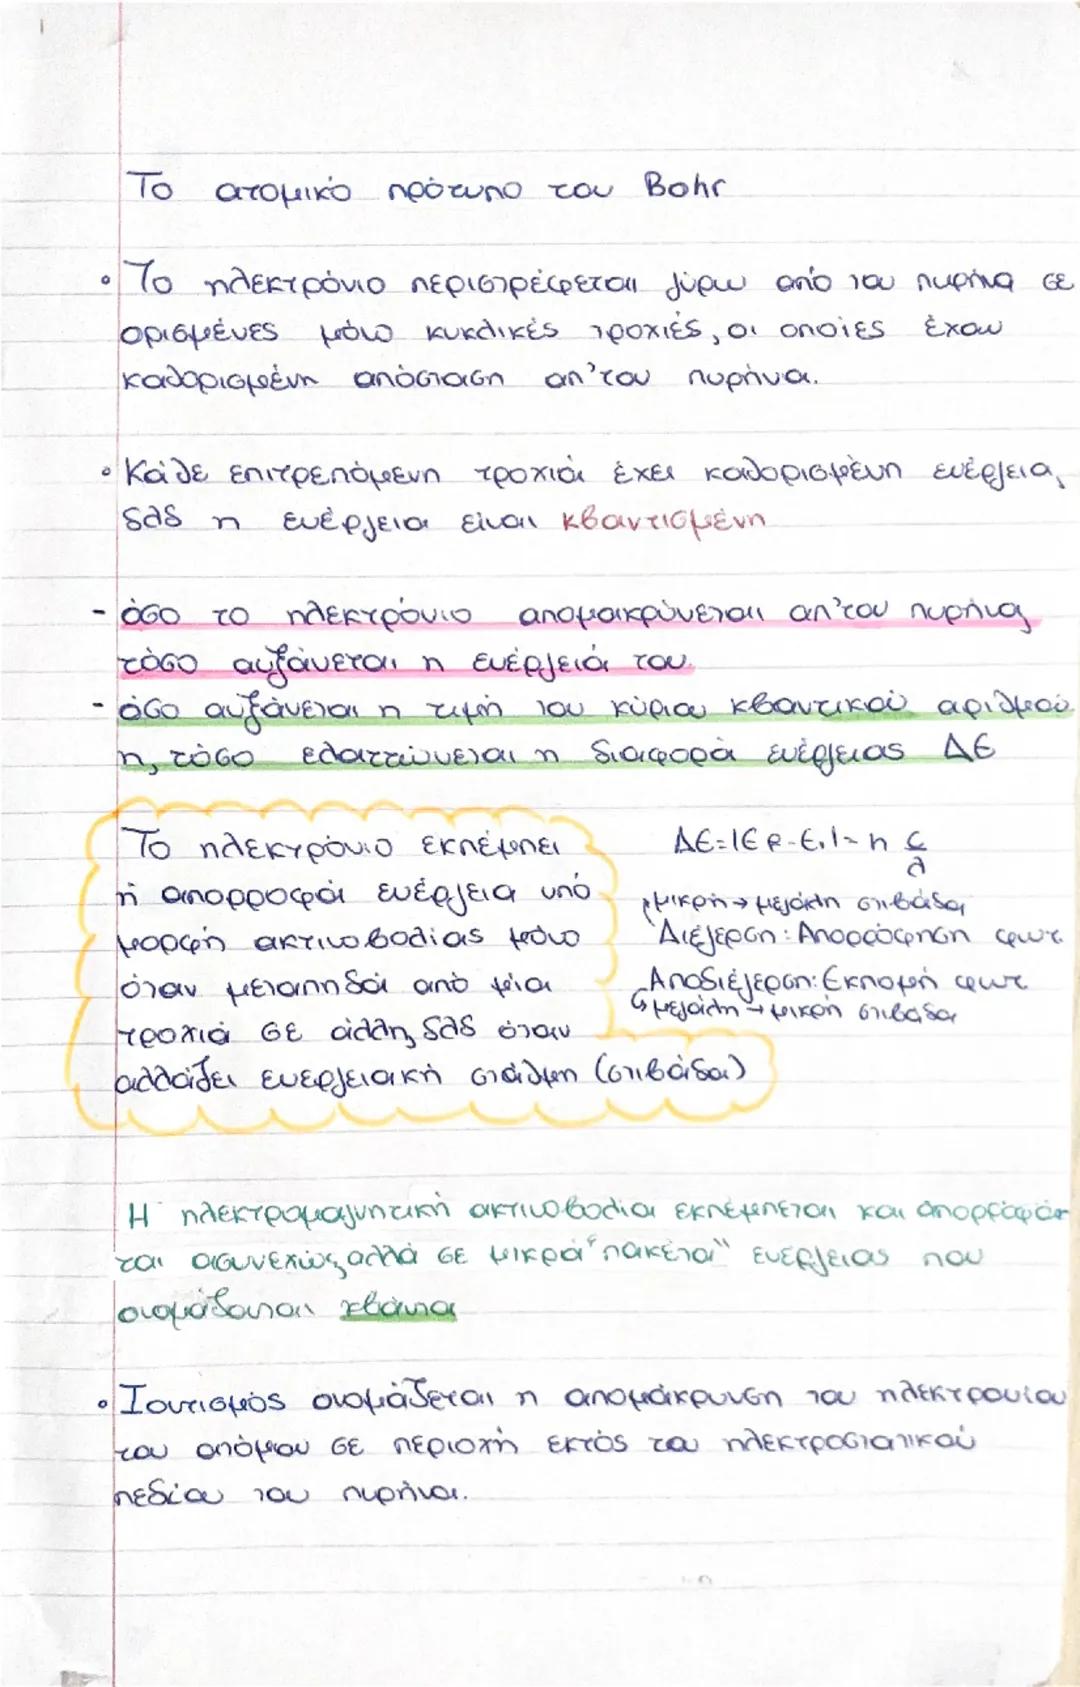 Το ατομικό πρότυπο του Bohr
• Το ηλεκτρόνιο περιστρέφεται γύρω από του πυρήνα σε
ορισμένες μόνο κυκλικές τροχιές, οι οποίες έχου
καθορισμένη απόσταση απ'του πυρήνα.
• Κάθε επιτρεπόμενη τροχιά έχει καθορισμένη ενέργεια,
δλδ η ενέργεια είναι κβαντισμένη
- όσο το ηλεκτρόνιο απομακρύνεται απ'του πυρήνα
τόσο αυξάνεται η ενέργειά του.
- όσο αυξάνεται η τιμή του κύριου κβαντικού αριθμού
n, τόσο ελαττώνεται η διαφορά ενέργειας ΔΕ
Το ηλεκτρόνιο εκπέμπει
ή απορροφά ενέργεια υπό
μορφή ακτινοβολίας μόνο
όταν μεταπηδά από μία
τροχιά σε άλλη, δλδ όταν
αλλάζει ενεργειακή στάθμη (στιβάδα)
ΔΕ=|Ef-Ei|=h c/λ
μικρή → μεγάλη στιβάδα
Διέγερση: Απορρόφηση φωτ.
Αποδιέγερση: Εκπομπή φωτ
↳ μεγάλη → μικρή στιβάδα
Η ηλεκτρομαγνητική ακτινοβολία εκπέμπεται και απορροφάε
ται ασυνεχώς, αλλά σε μικρά "πακέτα" ενέργειας που
ονομάζονται κβάντα
• Ιοντισμός ονομάζεται η απομάκρυνση του ηλεκτρονίου
του ατόμου σε περιοχή εκτός του ηλεκτροστατικού
πεδίου του πυρήνα.